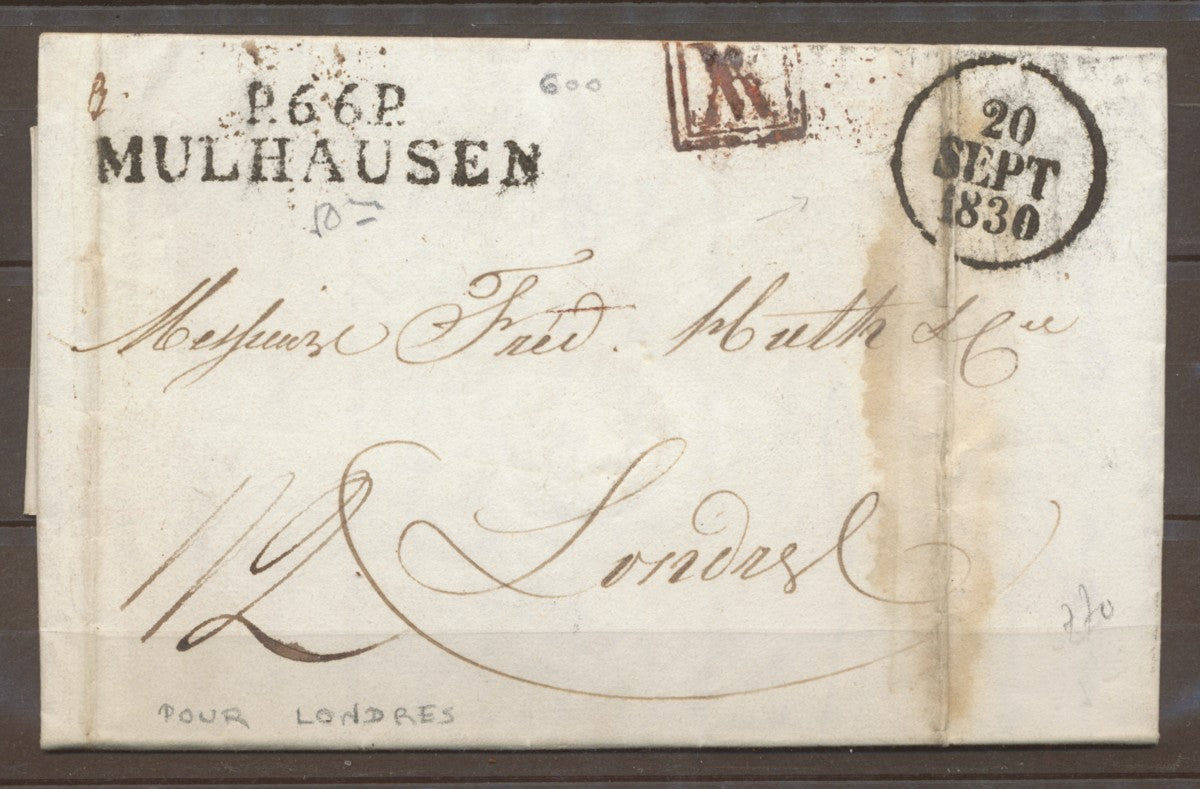 P.66.P.
MULHAUSEN
600
20
SEPT
1830
Messieurs Fréd. Huth & Cie
Londres
1/2
POUR LONDRES